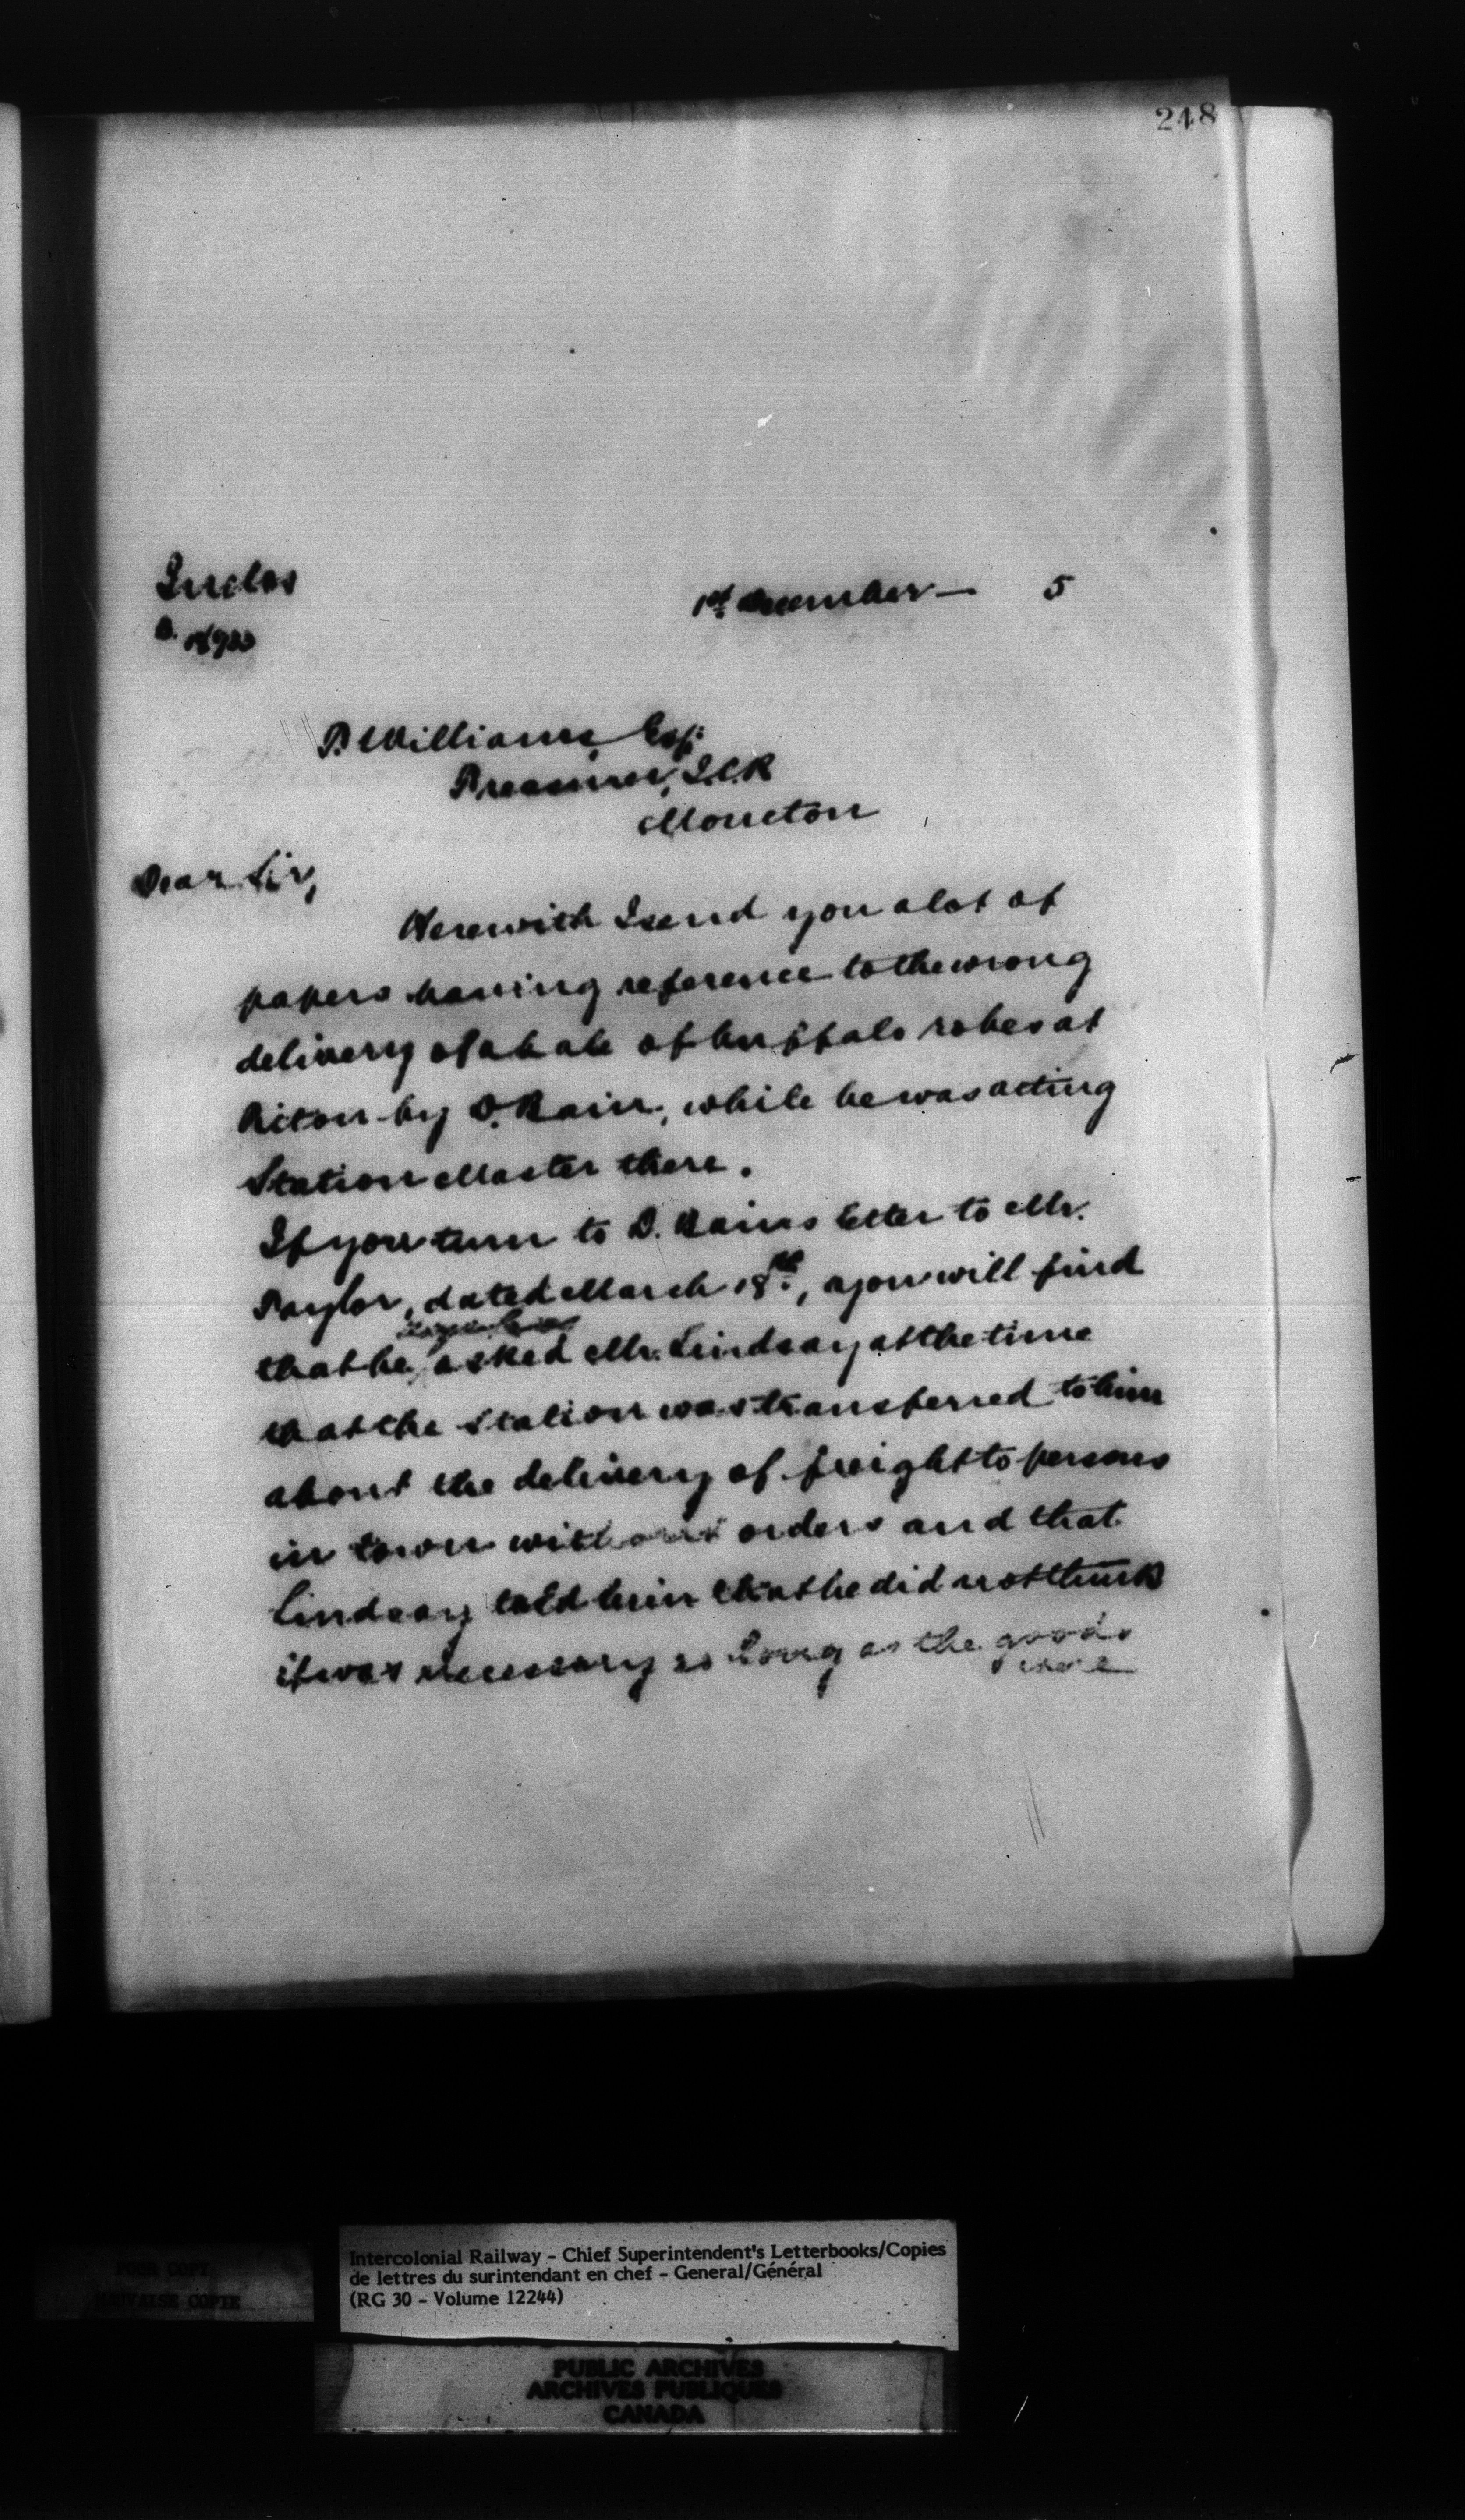 248
Inclos
1st December — 5
T. Williams Esq:
Treasurer, I.C.R
Moncton
Dear Sir,
Herewith I send you a lot of
papers having reference to the wrong
delivery of a bale of buffalo robes at
Pictou by D. Bain, while he was acting
Station Master there.
If you turn to D. Bains letter to Mr.
Taylor, dated March 18th, you will find
that he asked Mr. Lindsay at the time
that the station was transferred to him
about the delivery of freight to persons
in town without orders and that
Lindsay told him that he did not think
it was necessary so long as the goods
were
POOR COPY
MAUVAISE COPIE
Intercolonial Railway - Chief Superintendent's Letterbooks/Copies
de lettres du surintendant en chef - General/Général
(RG 30 - Volume 12244)
PUBLIC ARCHIVES
ARCHIVES PUBLIQUES
CANADA